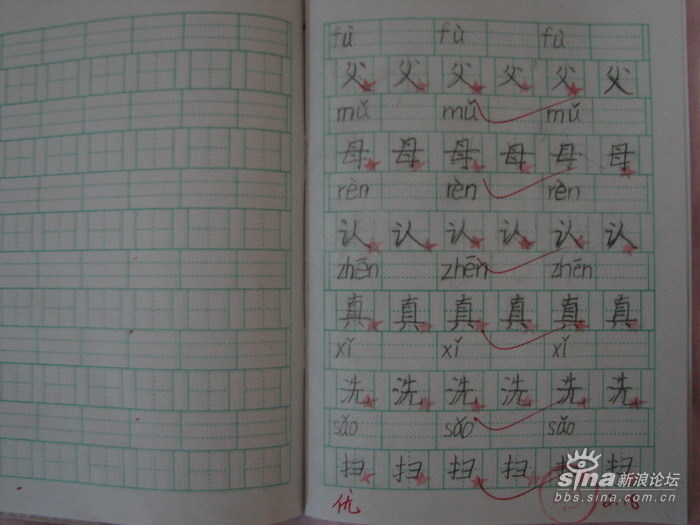 fù fù fù
父 父 父 父 父 父
mǔ mǔ mǔ
母 母 母 母 母 母
rèn rèn rèn
认 认 认 认 认 认
zhēn zhēn zhēn
真 真 真 真 真 真
xǐ xǐ xǐ
洗 洗 洗 洗 洗 洗
sǎo sǎo sǎo
扫 扫 扫 扫 扫 扫
优
sina新浪论坛
bbs.sina.com.cn